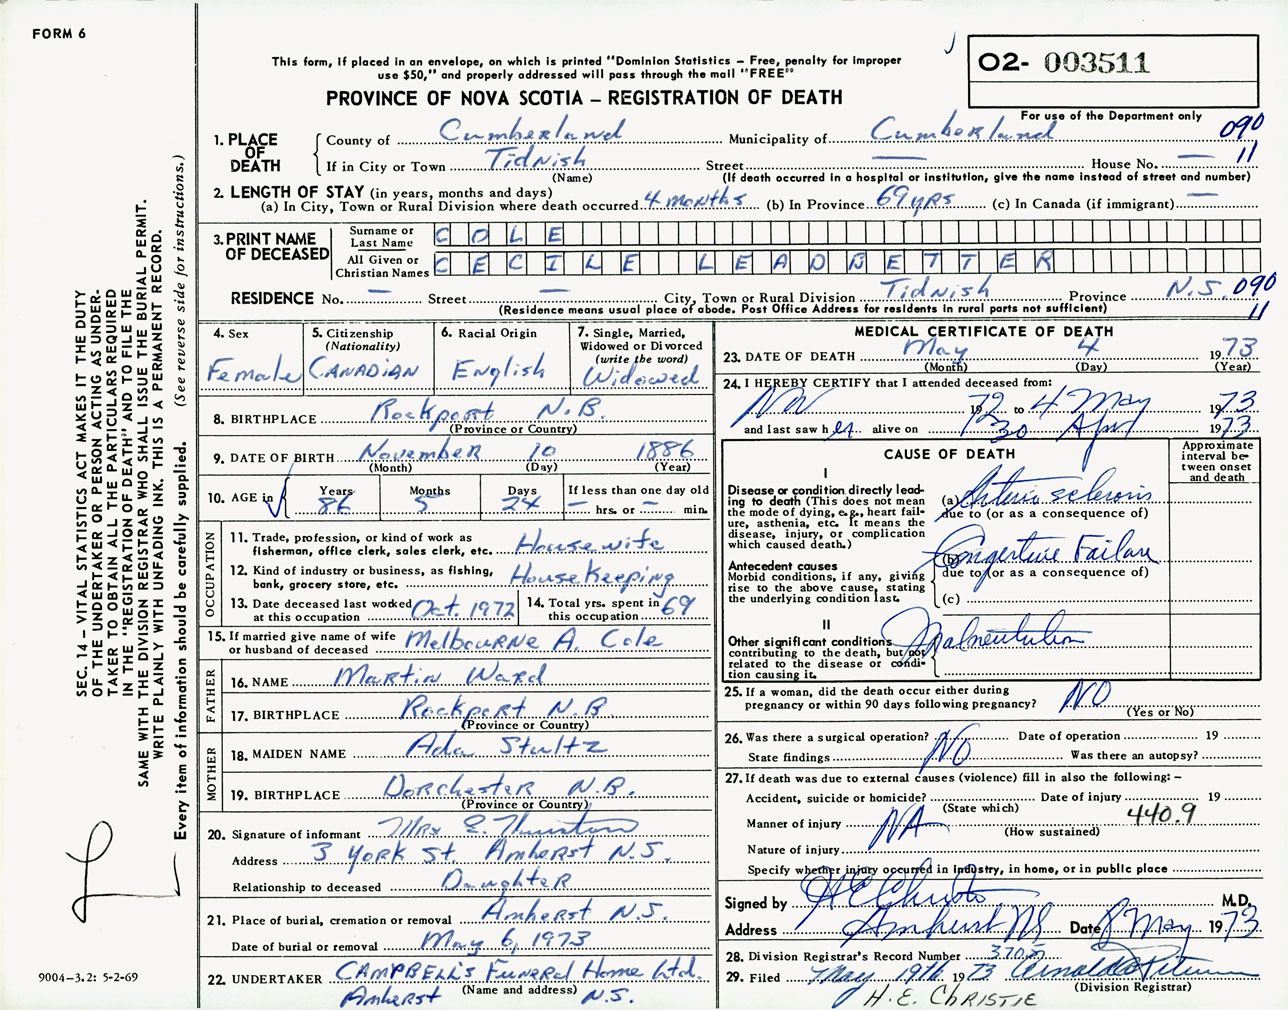 FORM 6
This form, if placed in an envelope, on which is printed "Dominion Statistics – Free, penalty for improper
use $50," and properly addressed will pass through the mail "FREE"
O2- 003511
PROVINCE OF NOVA SCOTIA – REGISTRATION OF DEATH
For use of the Department only
1. PLACE OF DEATH
County of Cumberland Municipality of Cumberland 090
If in City or Town Tidnish Street — House No. — 11
(Name) (If death occurred in a hospital or institution, give the name instead of street and number)
2. LENGTH OF STAY (in years, months and days)
(a) In City, Town or Rural Division where death occurred 4 months (b) In Province 69 yrs (c) In Canada (if immigrant) —
3. PRINT NAME OF DECEASED
Surname or Last Name COLE
All Given or Christian Names CECILE LEADBETTER
RESIDENCE No. — Street — City, Town or Rural Division Tidnish Province N.S. 090
(Residence means usual place of abode. Post Office Address for residents in rural parts not sufficient) 11
4. Sex
Female
5. Citizenship
(Nationality)
CANADIAN
6. Racial Origin
English
7. Single, Married,
Widowed or Divorced
(write the word)
Widowed
8. BIRTHPLACE Rockport N.B.
(Province or Country)
9. DATE OF BIRTH November 10 1886
(Month) (Day) (Year)
10. AGE in
Years Months Days If less than one day old
86 5 24 — hrs. or — min.
OCCUPATION
11. Trade, profession, or kind of work as
fisherman, office clerk, sales clerk, etc. Housewife
12. Kind of industry or business, as fishing,
bank, grocery store, etc. Housekeeping
13. Date deceased last worked
at this occupation Oct. 1972
14. Total yrs. spent in
this occupation 69
15. If married give name of wife
or husband of deceased Melbourne A. Cole
FATHER
16. NAME Martin Ward
17. BIRTHPLACE Rockport N.B
(Province or Country)
MOTHER
18. MAIDEN NAME Ada Stultz
19. BIRTHPLACE Dorchester N.B.
(Province or Country)
20. Signature of informant Mrs E. Thurston
Address 3 York St. Amherst N.S.
Relationship to deceased Daughter
21. Place of burial, cremation or removal Amherst N.S.
Date of burial or removal May 6, 1973
22. UNDERTAKER CAMPBELL'S Funeral Home Ltd.
(Name and address)
Amherst N.S.
MEDICAL CERTIFICATE OF DEATH
23. DATE OF DEATH May 4 1973
(Month) (Day) (Year)
24. I HEREBY CERTIFY that I attended deceased from:
1972 to 4 May 1973
and last saw her alive on 30 Apr 1973
CAUSE OF DEATH
Approximate
interval be-
tween onset
and death
I
Disease or condition directly lead-
ing to death (This does not mean
the mode of dying, e.g., heart fail-
ure, asthenia, etc. It means the
disease, injury, or complication
which caused death.)
(a) Arteriosclerosis
due to (or as a consequence of)
Antecedent causes
Morbid conditions, if any, giving
rise to the above cause, stating
the underlying condition last.
(b) Congestive Failure
due to (or as a consequence of)
(c)
II
Other significant conditions
contributing to the death, but not
related to the disease or condi-
tion causing it.
Malnutrition
25. If a woman, did the death occur either during
pregnancy or within 90 days following pregnancy? NO
(Yes or No)
26. Was there a surgical operation? NO Date of operation 19
State findings Was there an autopsy?
27. If death was due to external causes (violence) fill in also the following: –
Accident, suicide or homicide? Date of injury 19
(State which)
Manner of injury NA 440.9
(How sustained)
Nature of injury
Specify whether injury occurred in Industry, in home, or in public place
Signed by H E Christie M.D.
Address Amherst NS Date 8 May 1973
28. Division Registrar's Record Number
29. Filed May 19th 1973
(Division Registrar)
H. E. CHRISTIE
SEC. 14 – VITAL STATISTICS ACT MAKES IT THE DUTY
OF THE UNDERTAKER OR PERSON ACTING AS UNDER-
TAKER TO OBTAIN ALL THE PARTICULARS REQUIRED
IN THE "REGISTRATION OF DEATH" AND TO FILE THE
SAME WITH THE DIVISION REGISTRAR WHO SHALL ISSUE THE BURIAL PERMIT.
WRITE PLAINLY WITH UNFADING INK. THIS IS A PERMANENT RECORD.
Every item of information should be carefully supplied. (See reverse side for instructions.)
9004–3.2: 5-2-69